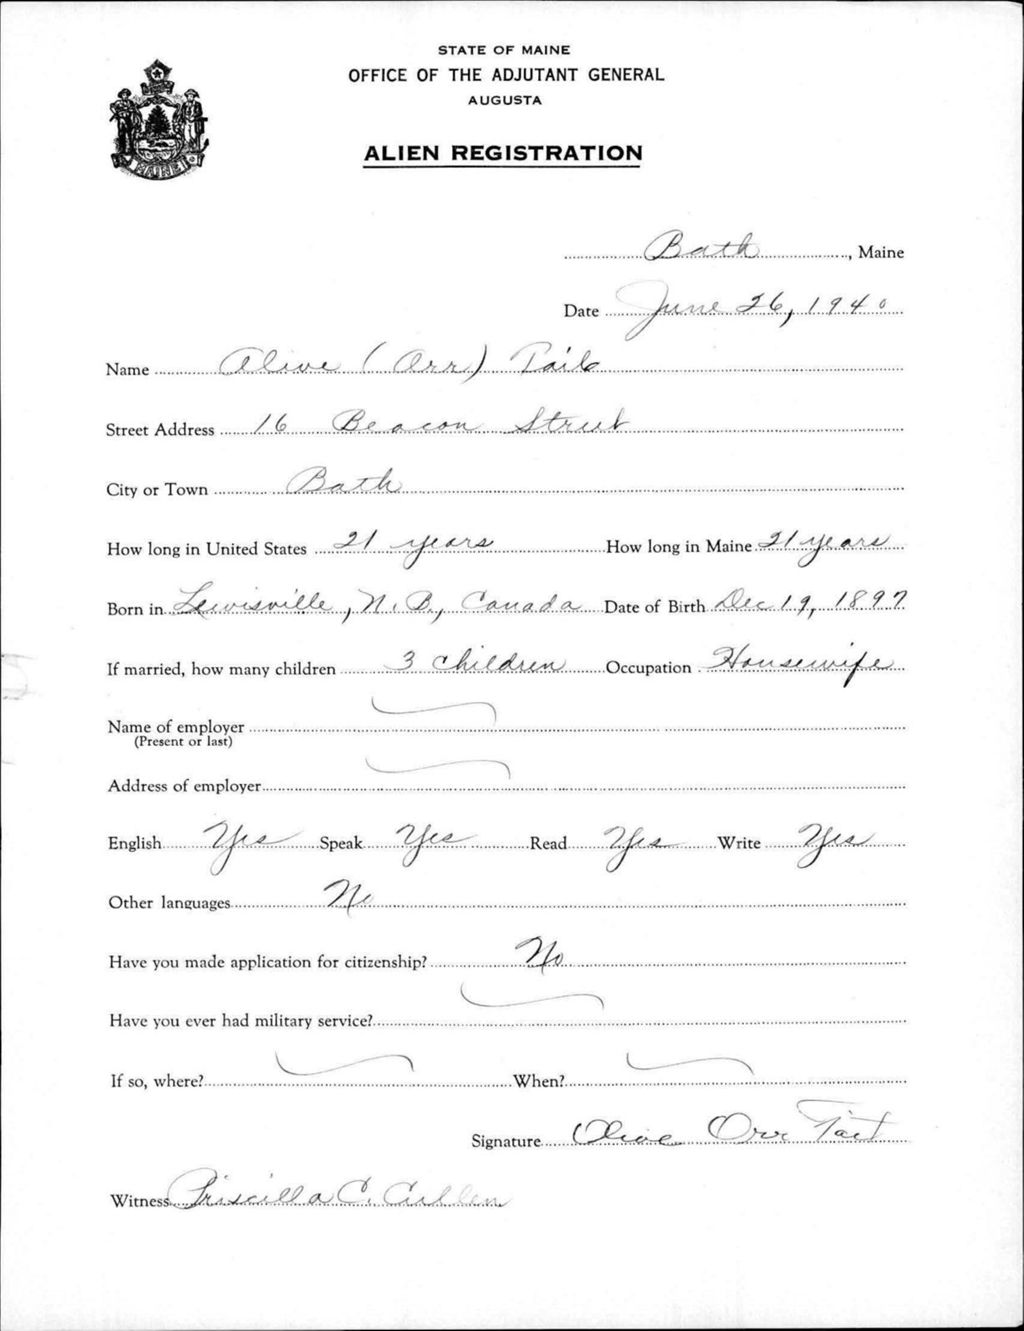 STATE OF MAINE
OFFICE OF THE ADJUTANT GENERAL
AUGUSTA
ALIEN REGISTRATION
MAINE
Bath, Maine
Date June 26, 1940
Name Olive (Orr) Tait
Street Address 16 Beacon Street
City or Town Bath
How long in United States 21 years How long in Maine 21 years
Born in Lewisville, N. B., Canada Date of Birth Dec 19, 1897
If married, how many children 3 children Occupation Housewife
Name of employer
(Present or last)
Address of employer
English Yes Speak Yes Read Yes Write Yes
Other languages No
Have you made application for citizenship? No
Have you ever had military service?
If so, where? When?
Signature Olive Orr Tait
Witness Priscilla C. Cullen